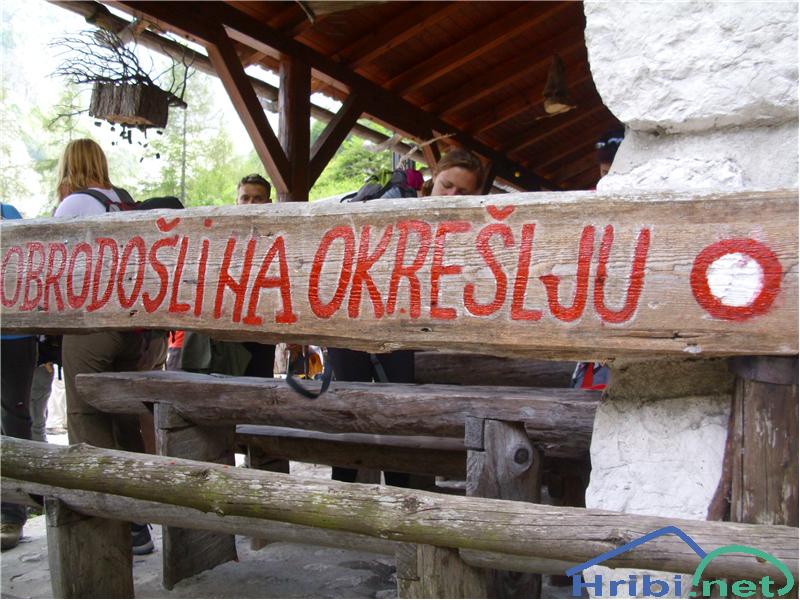 OBRODOŠLI NA OKREŠLJU
Hribi.net